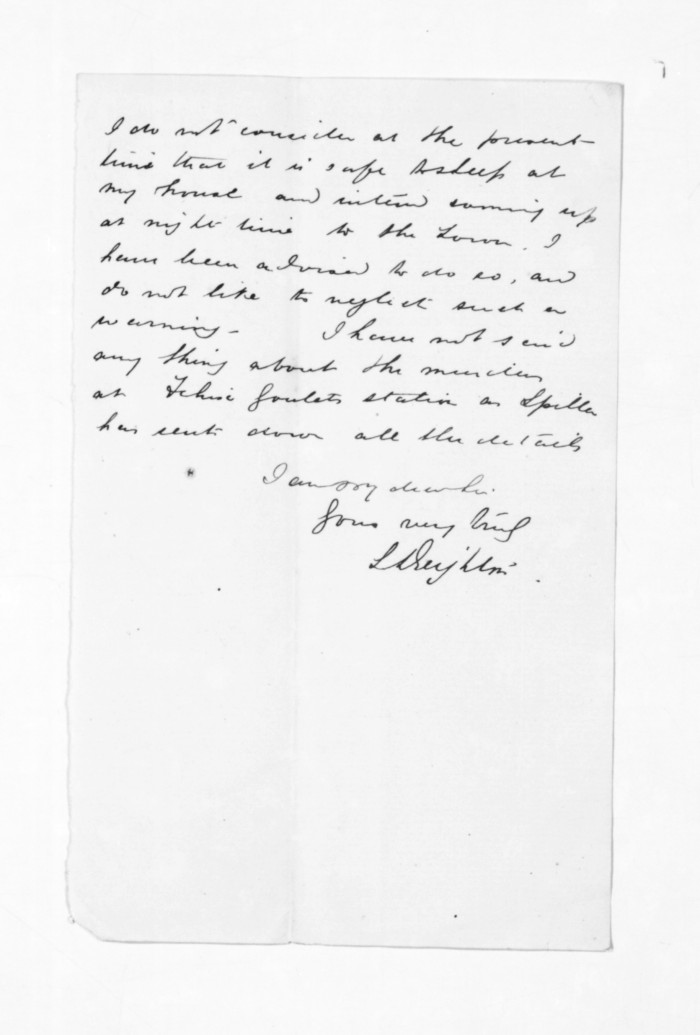 I do not consider at the present
time that it is safe to sleep at
my house and intend coming up
at night time to the Town. I
have been advised to do so, and
do not like to neglect such a
warning - I have not said
any thing about the murders
at station as
has sent down all the details
I am my dear Sir
Yours very truly
S Deighton